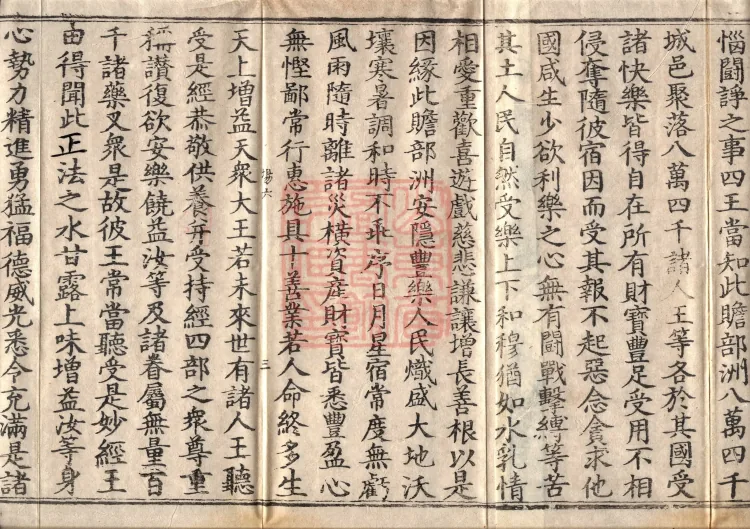 惱鬪諍之事四王當知此贍部洲八萬四千
城邑聚落八萬四千諸人王等各於其國受
諸快樂皆得自在所有財寶豐足受用不相
侵奪隨彼宿因而受其報不起惡念貪求他
國咸生少欲利樂之心無有鬪戰擊縛等苦
其土人民自然受樂上下和穆猶如水乳情
相愛重歡喜遊戲慈悲謙讓增長善根以是
因緣此贍部洲安隱豐樂人民熾盛大地沃
壤寒暑調和時不乖序日月星宿常度無虧
風雨隨時離諸災橫資產財寶皆悉豐盈心
無慳鄙常行惠施具十善業若人命終多生
場六 三
天上增益天衆大王若未來世有諸人王聽
受是經恭敬供養并受持經四部之衆尊重
稱讚復欲安樂饒益汝等及諸眷屬無量百
千諸藥叉衆是故彼王常當聽受是妙經王
由得聞此正法之水甘露上味增益汝等身
心勢力精進勇猛福德威光悉令充滿是諸